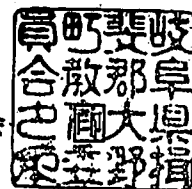 岐阜県揖
斐郡大野
町教育委
員会之印